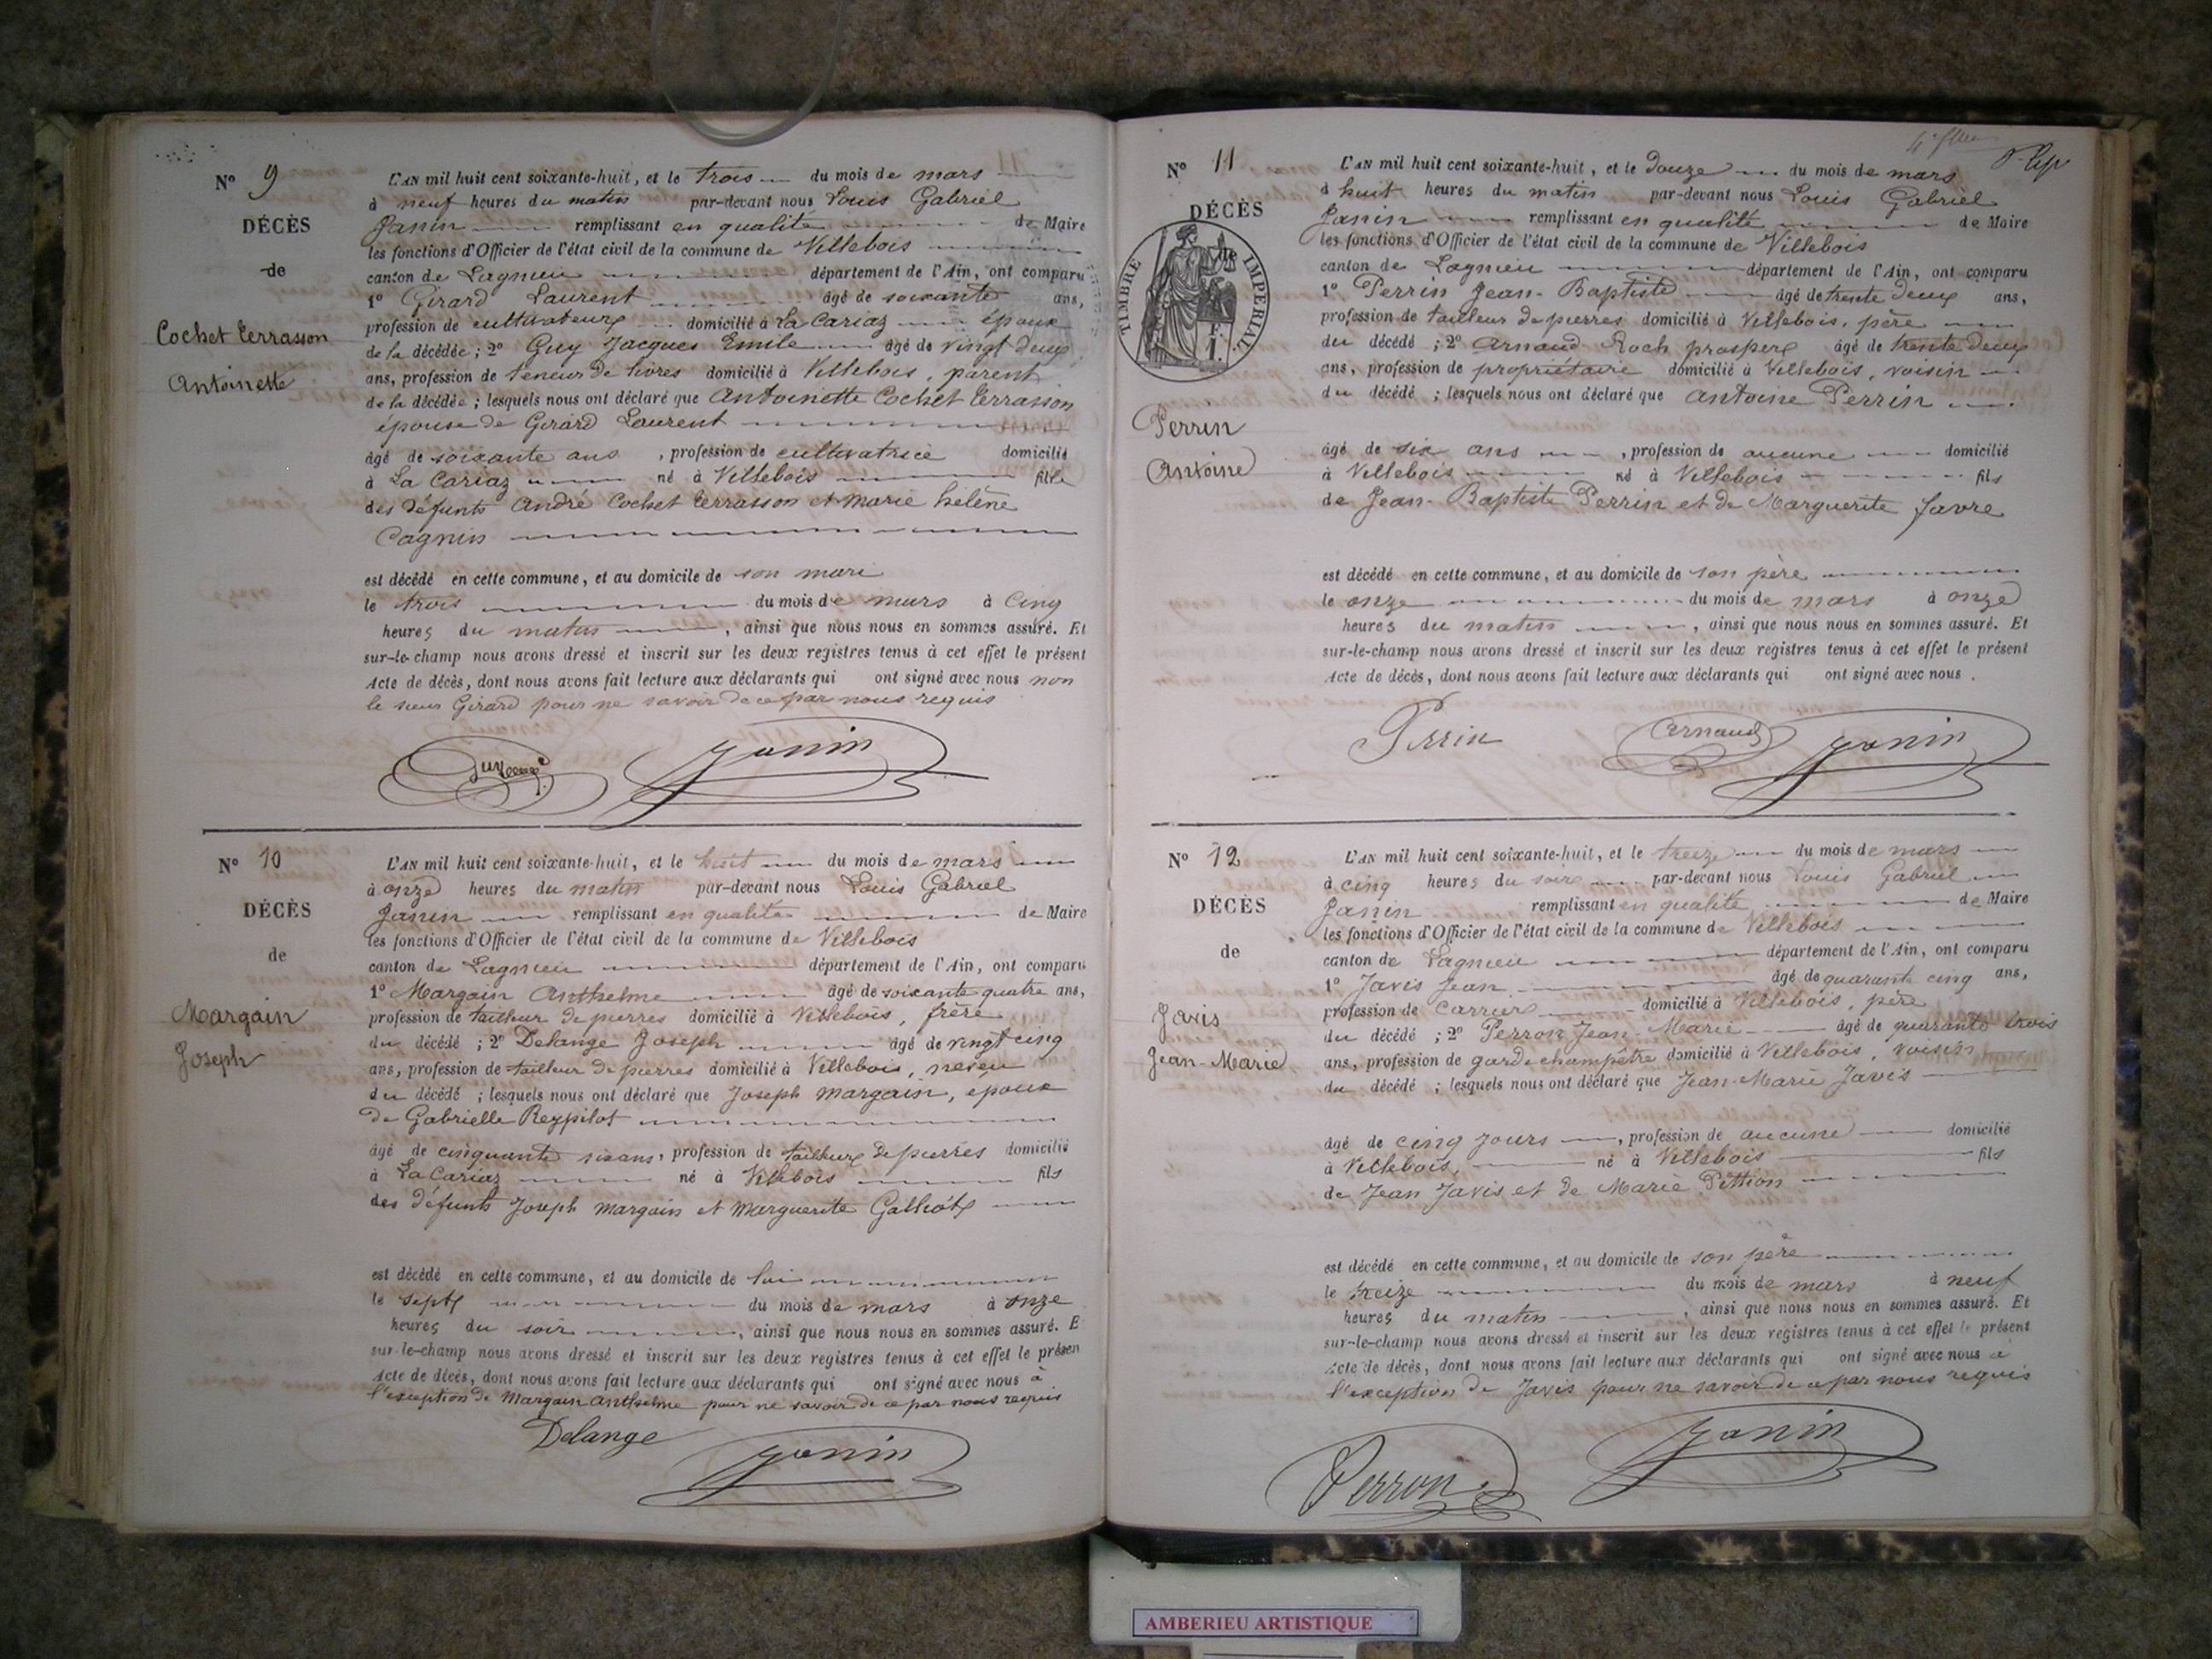 N° 9
DÉCÈS
de
Cochet Terrasson
Antoinette
L'AN mil huit cent soixante-huit, et le trois du mois de mars
à neuf heures du matin par-devant nous Louis Gabriel
Janin remplissant en qualité de Maire
les fonctions d'Officier de l'état civil de la commune de Villebois
canton de Lagnieu département de l'Ain, ont comparu
1° Girard Laurent âgé de soixante ans,
profession de cultivateur domicilié à La Cariaz époux
de la décédée; 2° Guy Jacques Emile âgé de vingt deux
ans, profession de teneur de livres domicilié à Villebois, parent
de la décédée; lesquels nous ont déclaré que Antoinette Cochet Terrasson
épouse de Girard Laurent
âgé de soixante ans, profession de cultivatrice domicilié
à La Cariaz né à Villebois fille
des défunts André Cochet Terrasson et Marie hélène
Cagnin
est décédé en cette commune, et au domicile de son mari
le trois du mois de mars à Cinq
heures du matin, ainsi que nous nous en sommes assuré. Et
sur-le-champ nous avons dressé et inscrit sur les deux registres tenus à cet effet le présent
Acte de décès, dont nous avons fait lecture aux déclarants qui ont signé avec nous non
le sieur Girard pour ne savoir de ce par nous requis
Janin
N° 10
DÉCÈS
de
Margain
Joseph
L'AN mil huit cent soixante-huit, et le huit du mois de mars
à onze heures du matin par-devant nous Louis Gabriel
Janin remplissant en qualité de Maire
les fonctions d'Officier de l'état civil de la commune de Villebois
canton de Lagnieu département de l'Ain, ont comparu
1° Margain Anthelme âgé de soixante quatre ans,
profession de tailleur de pierres domicilié à Villebois, frère
du décédé; 2° Delange Joseph âgé de vingt cinq
ans, profession de tailleur de pierres domicilié à Villebois, neveu
du décédé; lesquels nous ont déclaré que Joseph Margain, époux
de Gabrielle Reypilot
âgé de cinquante six ans, profession de tailleur de pierres domicilié
à La Cariaz né à Villebois fils
des défunts Joseph Margain et Marguerite
est décédé en cette commune, et au domicile de lui
le sept du mois de mars à onze
heures du soir, ainsi que nous nous en sommes assuré. E
sur-le-champ nous avons dressé et inscrit sur les deux registres tenus à cet effet le présen
Acte de décès, dont nous avons fait lecture aux déclarants qui ont signé avec nous à
l'exception de Margain Anthelme pour ne savoir de ce par nous requis
Delange Janin
N° 11
DÉCÈS
de
TIMBRE IMPERIAL
Perrin
Antoine
L'AN mil huit cent soixante-huit, et le douze du mois de mars
à huit heures du matin par-devant nous Louis Gabriel
Janin remplissant en qualité de Maire
les fonctions d'Officier de l'état civil de la commune de Villebois
canton de Lagnieu département de l'Ain, ont comparu
1° Perrin Jean-Baptiste âgé de trente deux ans,
profession de tailleur de pierres domicilié à Villebois, père
du décédé; 2° Arnaud Roch prosper âgé de trente deux
ans, profession de propriétaire domicilié à Villebois, voisin
du décédé; lesquels nous ont déclaré que Antoine Perrin
âgé de six ans, profession de aucune domicilié
à Villebois né à Villebois fils
de Jean-Baptiste Perrin et de Marguerite favre
est décédé en cette commune, et au domicile de son père
le onze du mois de mars à onze
heures du matin, ainsi que nous nous en sommes assuré. Et
sur-le-champ nous avons dressé et inscrit sur les deux registres tenus à cet effet le présent
Acte de décès, dont nous avons fait lecture aux déclarants qui ont signé avec nous.
Perrin Arnaud Janin
N° 12
DÉCÈS
de
Javis
Jean-Marie
L'AN mil huit cent soixante-huit, et le treize du mois de mars
à cinq heures du soir par-devant nous Louis Gabriel
Janin remplissant en qualité de Maire
les fonctions d'Officier de l'état civil de la commune de Villebois
canton de Lagnieu département de l'Ain, ont comparu
1° Javis Jean âgé de quarante cinq ans,
profession de carrier domicilié à Villebois, père
du décédé; 2° Perron Jean-Marie âgé de quarante trois
ans, profession de garde champêtre domicilié à Villebois, voisin
du décédé; lesquels nous ont déclaré que Jean-Marie Javis
âgé de cinq jours, profession de aucune domicilié
à Villebois, né à Villebois fils
de Jean Javis et de Marie Pittion
est décédé en cette commune, et au domicile de son père
le treize du mois de mars à neuf
heures du matin, ainsi que nous nous en sommes assuré. Et
sur-le-champ nous avons dressé et inscrit sur les deux registres tenus à cet effet le présent
Acte de décès, dont nous avons fait lecture aux déclarants qui ont signé avec nous à
l'exception de Javis pour ne savoir de ce par nous requis
Perron Janin
AMBERIEU ARTISTIQUE